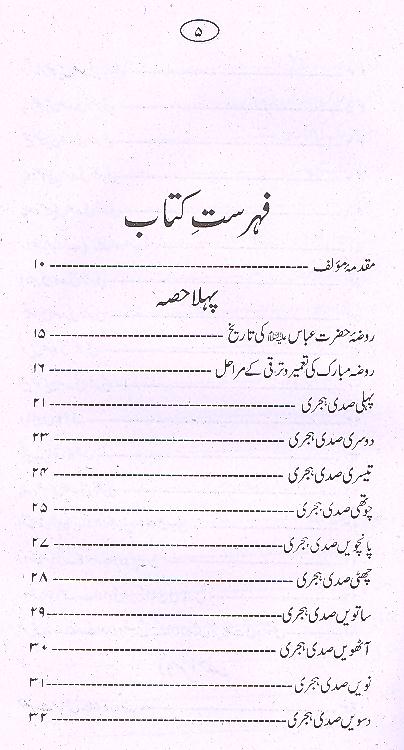 ۵
فہرستِ کتاب
مقدمۂ مؤلف ---------------------------------------- ۱۰
پہلا حصہ
روضۂ حضرت عباس علیہ السلام کی تاریخ ------------------------- ۱۵
روضہ مبارک کی تعمیر و ترقی کے مراحل ------------------------- ۱۶
پہلی صدی ہجری ---------------------------------------- ۲۱
دوسری صدی ہجری ------------------------------------- ۲۳
تیسری صدی ہجری ------------------------------------- ۲۴
چوتھی صدی ہجری -------------------------------------- ۲۵
پانچویں صدی ہجری ------------------------------------- ۲۷
چھٹی صدی ہجری --------------------------------------- ۲۸
ساتویں صدی ہجری ------------------------------------- ۲۹
آٹھویں صدی ہجری ------------------------------------- ۳۰
نویں صدی ہجری --------------------------------------- ۳۱
دسویں صدی ہجری ------------------------------------- ۳۲